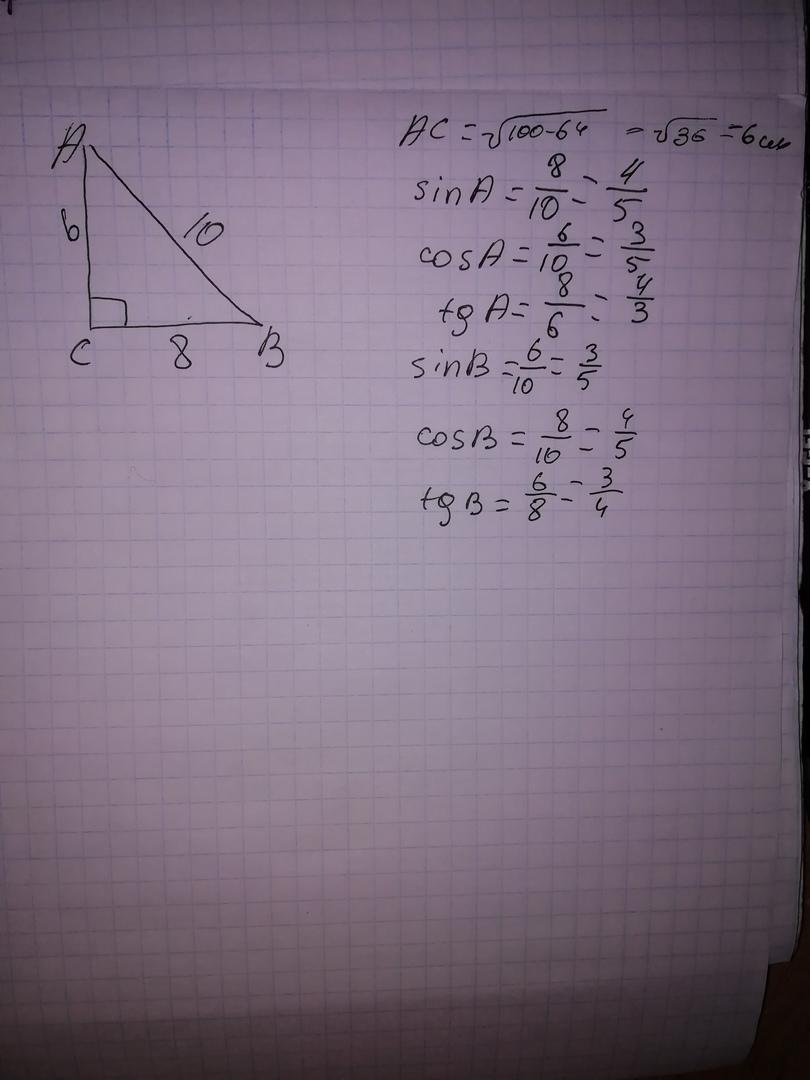 A
6
10
C
8
B
AC = √100-64 = √36 = 6см
sinA = 8/10 = 4/5
cosA = 6/10 = 3/5
tgA = 8/6 = 4/3
sinB = 6/10 = 3/5
cosB = 8/10 = 4/5
tgB = 6/8 = 3/4